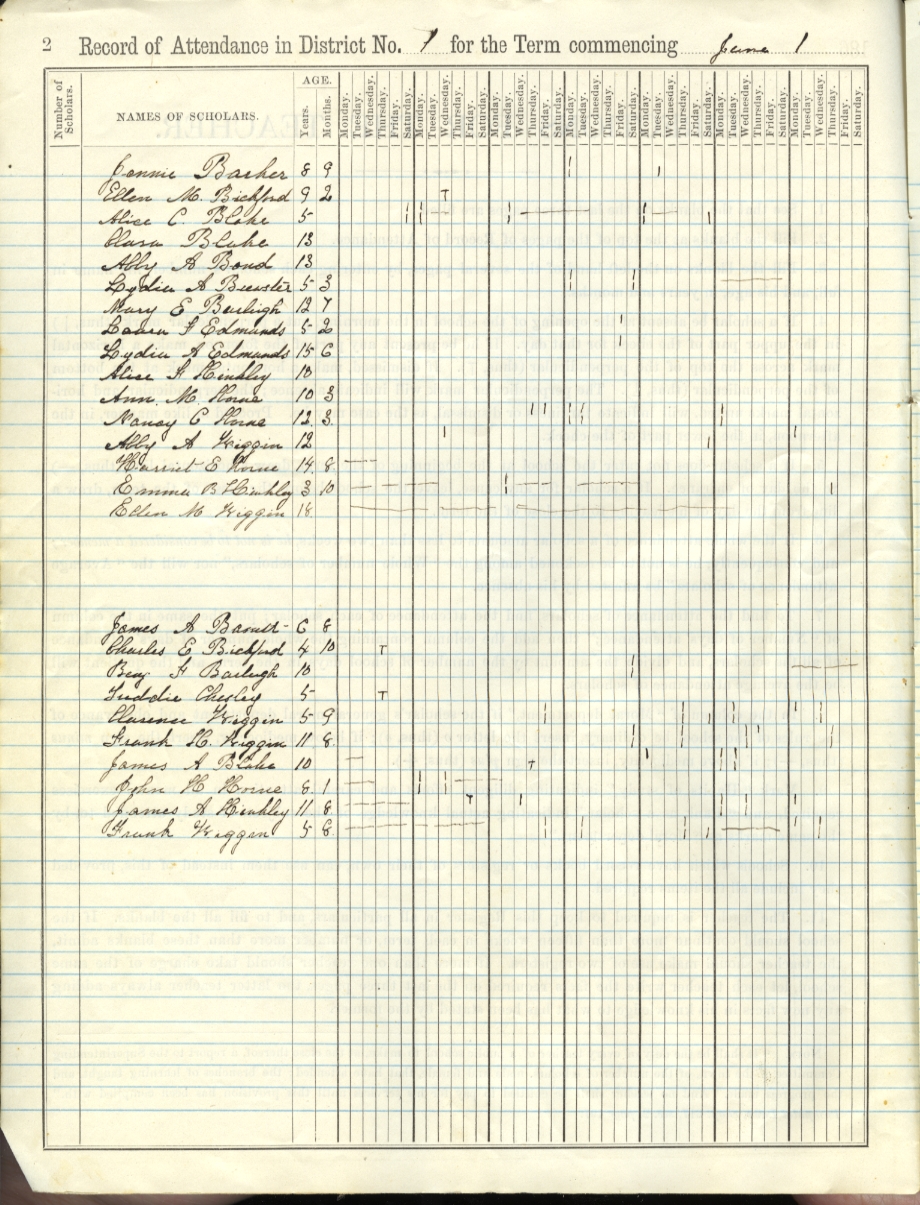 2 Record of Attendance in District No. 7 for the Term commencing June 1
Number of Scholars. NAMES OF SCHOLARS. AGE. Years. Months. Monday. Tuesday. Wednesday. Thursday. Friday. Saturday. Monday. Tuesday. Wednesday. Thursday. Friday. Saturday. Monday. Tuesday. Wednesday. Thursday. Friday. Saturday. Monday. Tuesday. Wednesday. Thursday. Friday. Saturday. Monday. Tuesday. Wednesday. Thursday. Friday. Saturday. Monday. Tuesday. Wednesday. Thursday. Friday. Saturday. Monday. Tuesday. Wednesday. Thursday. Friday. Saturday.
Jennie Barker 8 9
Ellen M. Bickford 9 2 T
Alice C. Blake 5
Clara Blake 13
Abby A Bond 13
Lydia A Brewster 5 3
Mary E Burleigh 12 7
Laura F Edmunds 5 2
Lydia A Edmunds 15 6
Alice F Hinkley 10
Ann. M. Horne 10 3
Nancy C Horne 12. 3.
Abby A Wiggin 12
Harriet E Horne 14. 8.
Emma B Hinkley 3 10
Ellen M Wiggin 18.
James A 6 8
Charles E Bickford 4 10 T
Benj F Burleigh 10
Freddie Chesley 5 T
Clarence Wiggin 5 9
Frank H. Wiggin 11 8.
James A Blake 10 T
John H Horne 8. 1
James A Hinkley 11 8 T
Frank Wiggin 5 8